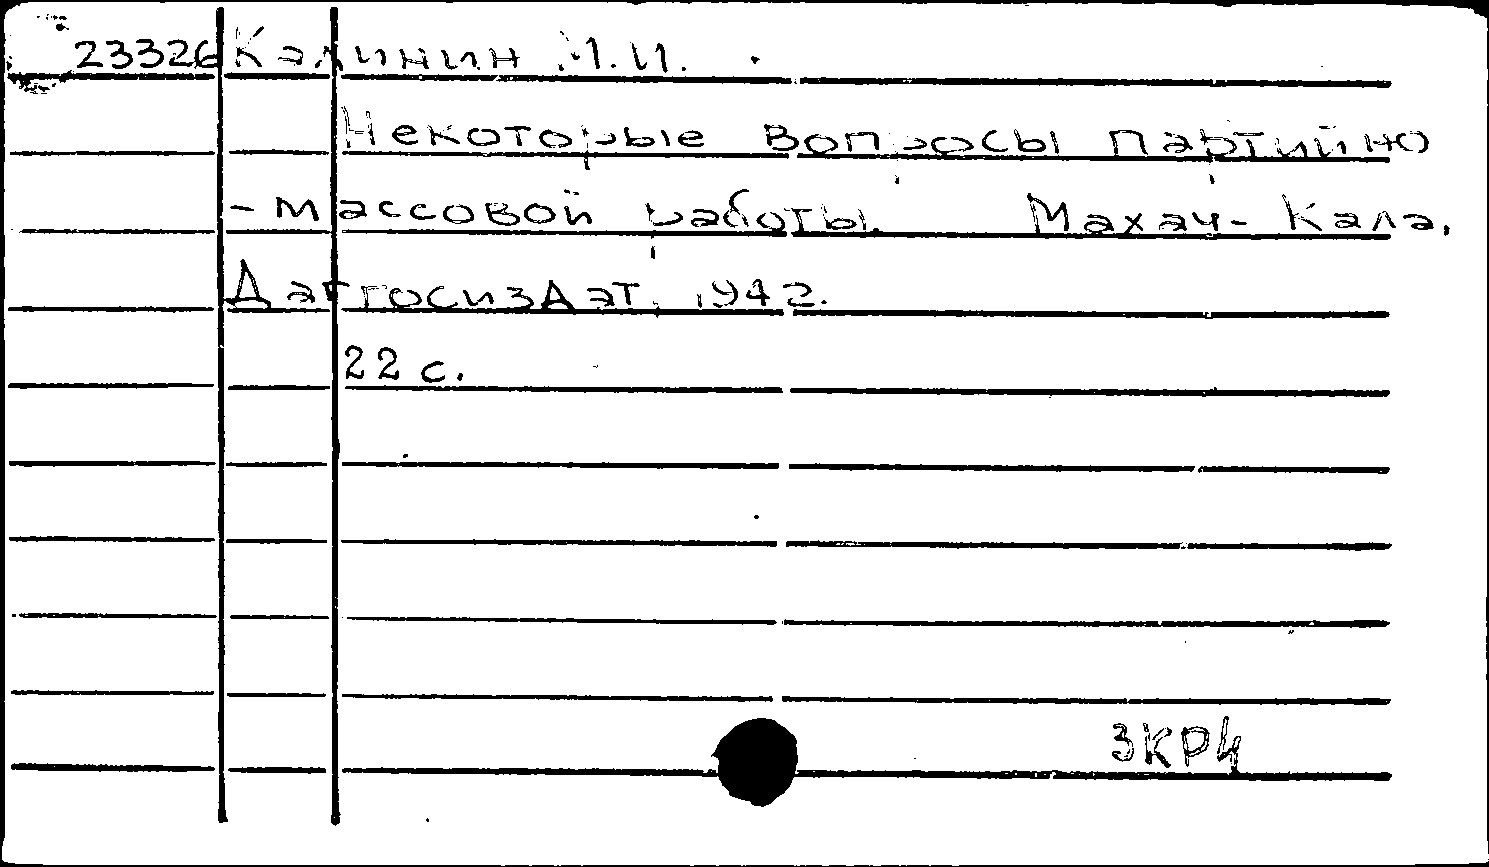 23326 Калинин М.И.
Некоторые вопросы партийно
-массовой работы. Махач-Кала,
Даггосиздат, 1942.
22 с.
3КР4